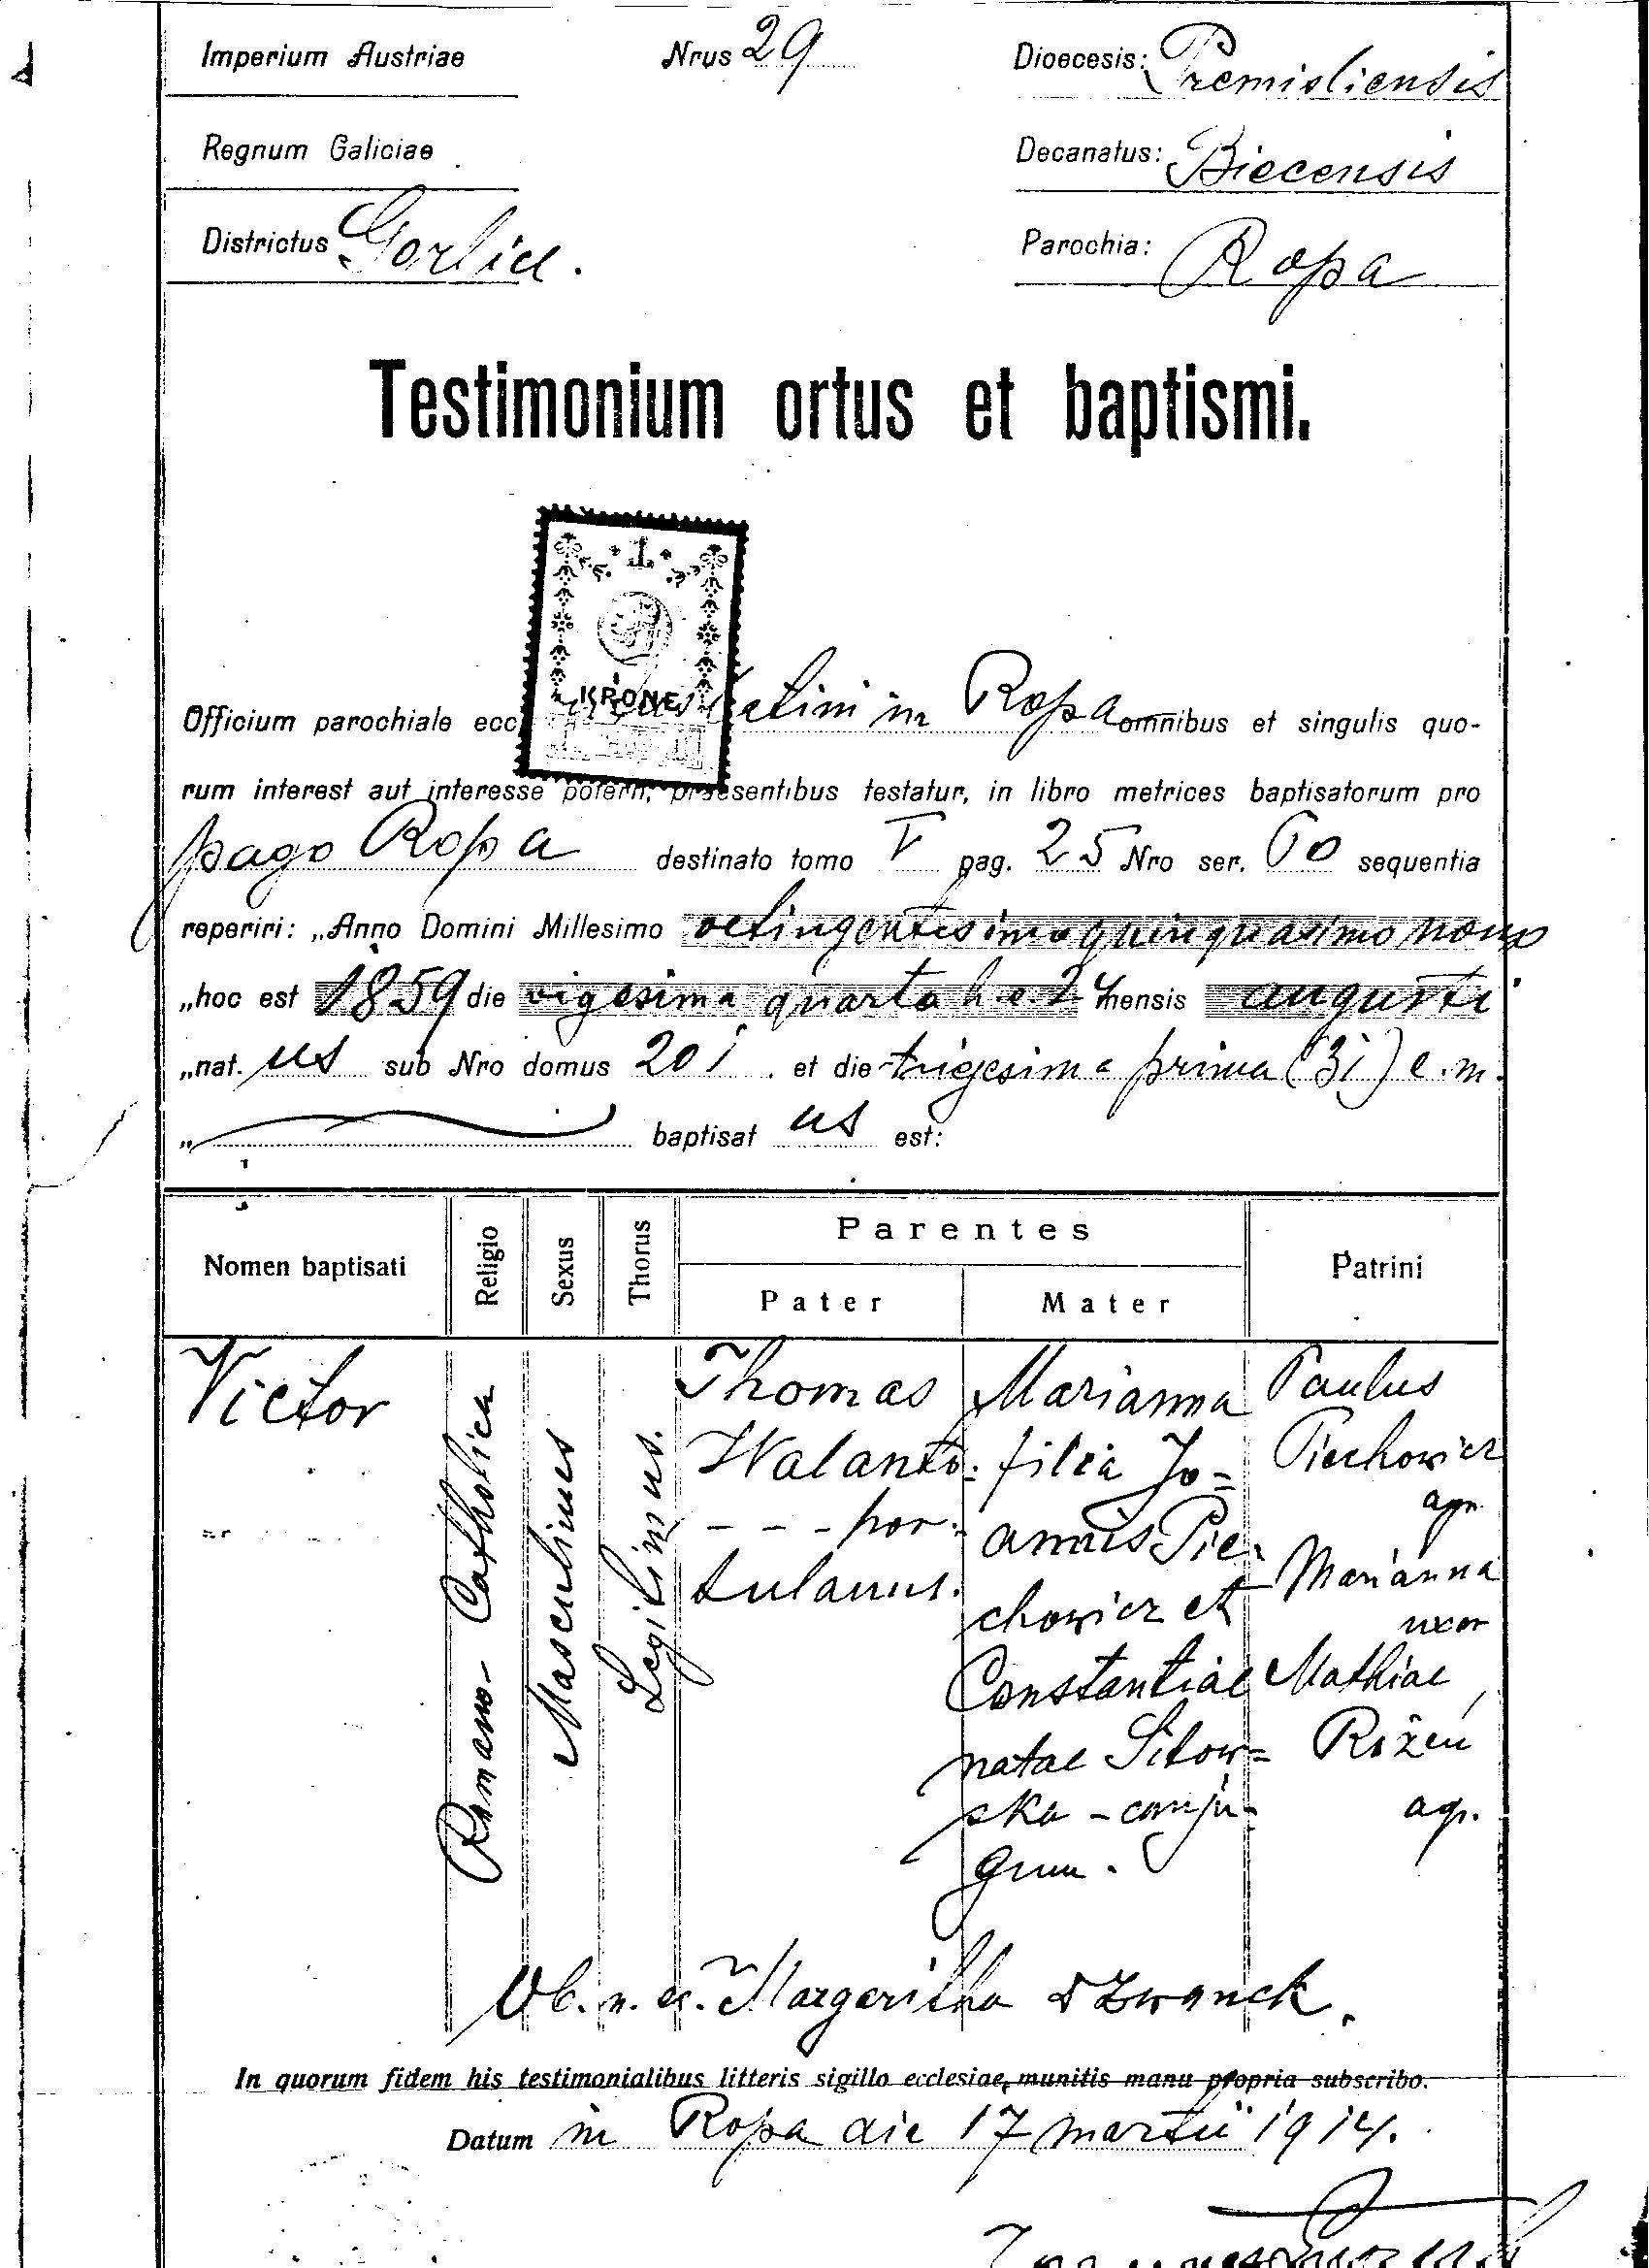 Imperium Austriae Nrus 29 Dioecesis: Premisliensis
Regnum Galiciae Decanatus: Biecensis
Districtus Gorlice. Parochia: Ropa
Testimonium ortus et baptismi.
KRONE
Officium parochiale ecc latini in Ropa omnibus et singulis quo-
rum interest aut interesse poterit, praesentibus testatur, in libro metrices baptisatorum pro
pago Ropa destinato tomo V pag. 25 Nro ser. 60 sequentia
reperiri: „Anno Domini Millesimo octingentesimo quinquasimo nono
„hoc est 1859 die vigesima quarta h. e. 24 mensis augusti
„nat. us sub Nro domus 201. et die trigesima prima (31) e. m.
„ baptisat us est:
Nomen baptisati Religio Sexus Thorus Parentes Patrini
Pater Mater
Victor
Romano-Catholica
Masculinus
Legitimus.
Thomas
Walanto-
- - - hor-
tulanus.
Marianna
filia Jo-
annis Pie-
chowicz et
Constantiae
natae Sitow-
ska - conju-
gum.
Paulus
Piechowicz
agr.
Marianna
uxor
Mathiae
Rożeń
agr.
Ob. n. ex. Margaritha
In quorum fidem his testimonialibus litteris sigillo ecclesiae, munitis manu propria subscribo.
Datum in Ropa die 17 martii 1914.